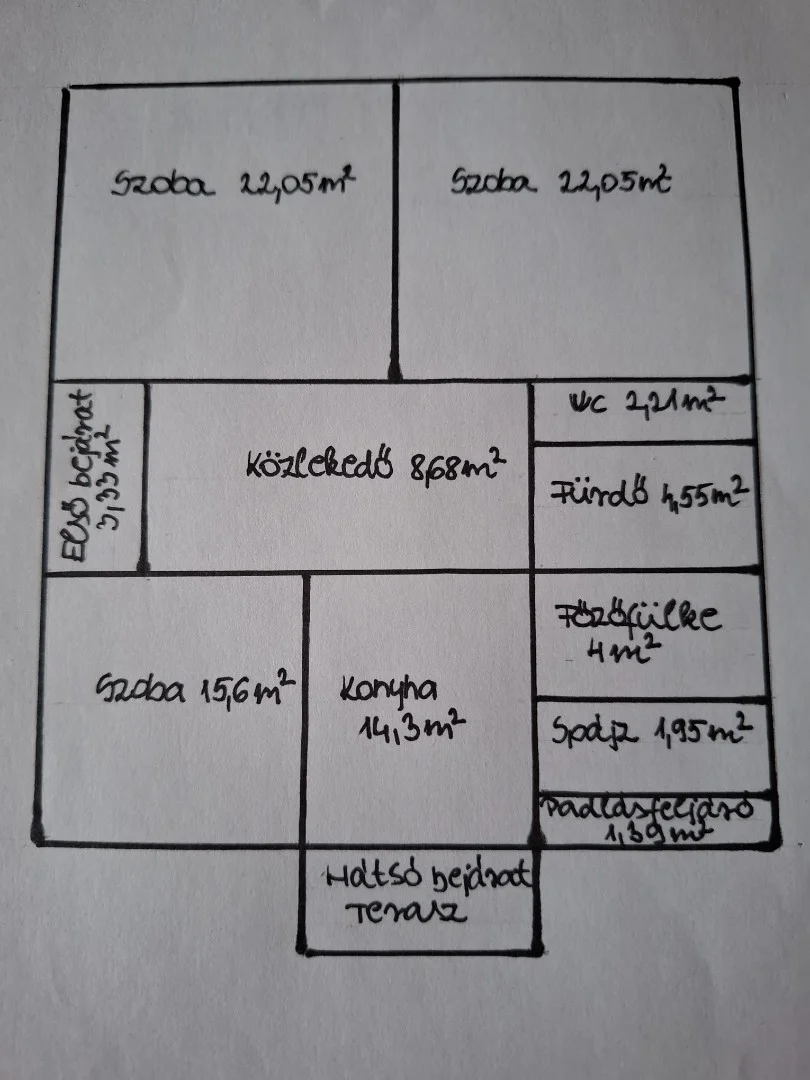 Szoba 22,05 m²
Szoba 22,05 m²
Első bejárat
3,33 m²
Közlekedő 8,68 m²
WC 2,21 m²
Fürdő 4,55 m²
Főzőfülke
4 m²
Szoba 15,6 m²
Konyha
14,3 m²
Spájz 1,95 m²
Padlásfeljáró
1,39 m²
Hátsó bejárat
Terasz